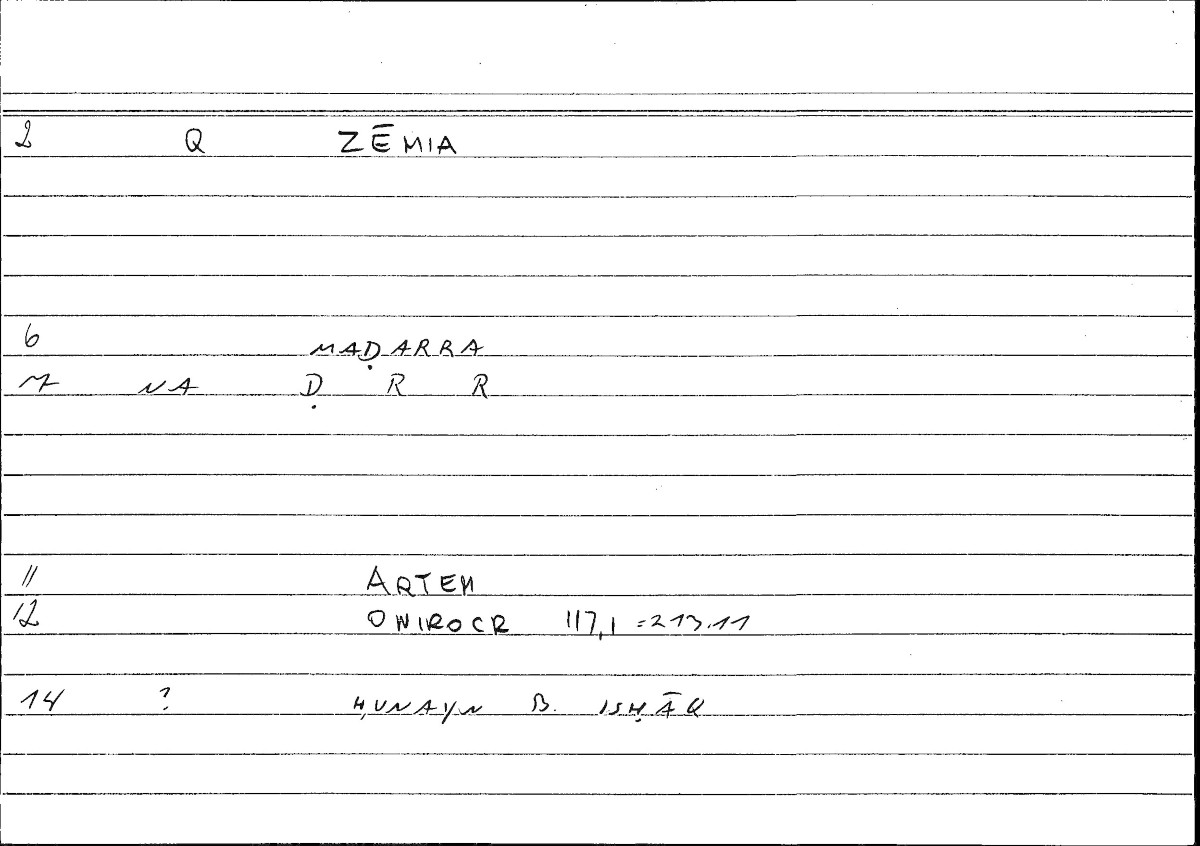 2 Q ZĒMIA
6 MAḌARRA
7 NA Ḍ R R
11 ARTEM
12 ONIROCR 117,1 =213.11
14 ? ḤUNAYN B. ISḤĀQ